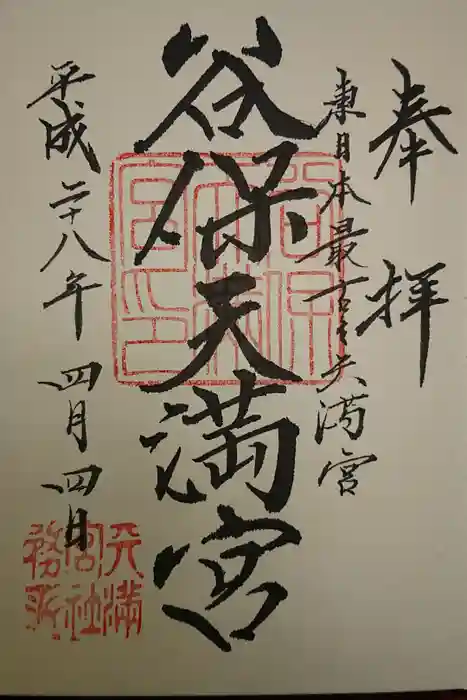 奉拝
東日本最古之天満宮
谷保天満宮
平成二十八年四月四日
天満
宮社
務所